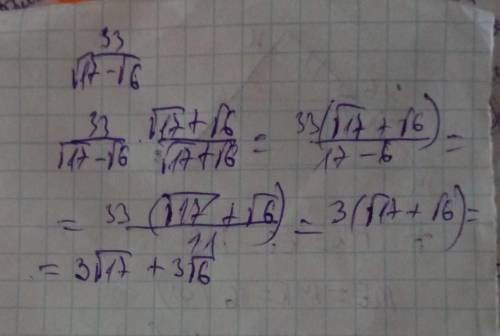 33/(√17-√6)
33/(√17-√6) · (√17+√6)/(√17+√6) = 33(√17+√6)/(17-6) =
= 33(√17+√6)/11 = 3(√17+√6) =
= 3√17 + 3√6